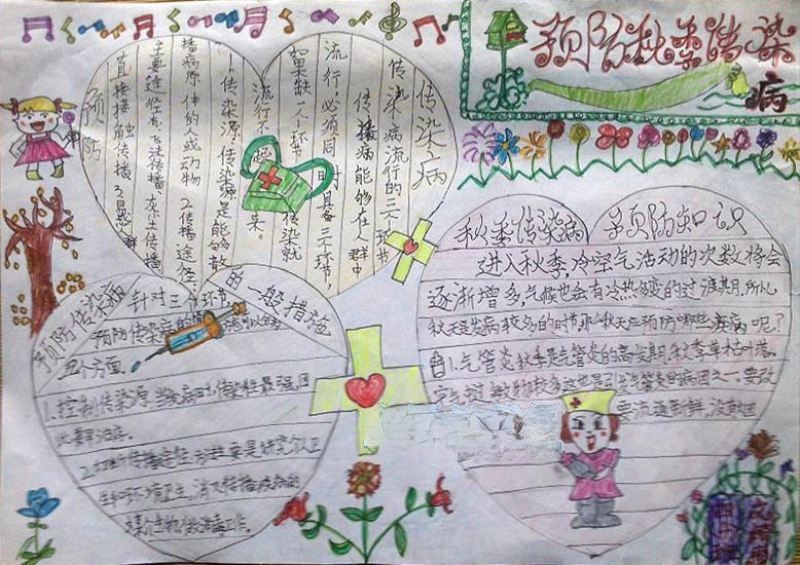 预防秋季传染
病
传染病
传染病流行的三个环节
传播病能够在人群中
流行，必须同时具备三个环节，
如果缺一个环节，传染就
流行不起来。
1、传染源：传染源是能够散
播病原体的人或动物 2、传播途径：
主要途径有飞沫传播、灰尘传播
直接接触传播 3、易感群
预防
秋季传染病 预防知识
进入秋季，冷空气活动的次数将会
逐渐增多，气候也会有冷热多变的过渡其月，所以
秋天是发病较多的时节，那么秋天应预防哪些疾病呢？
1、气管炎：秋季是气管炎的高发期，秋季草枯叶落。
空气过敏物较多这也是引发气管炎的病因之一。要改
要流通新鲜，没
预防传染病的一般措施
针对三个环节
预防传染病的措施可以分为
四个方面。
1、控制传染源，当发病时，传染性最强，因
此要早治疗。
2、切断传播途径：方法主要是讲究个人卫
生和环境卫生，消灭传播疾病的
媒介生物，做消毒工作。